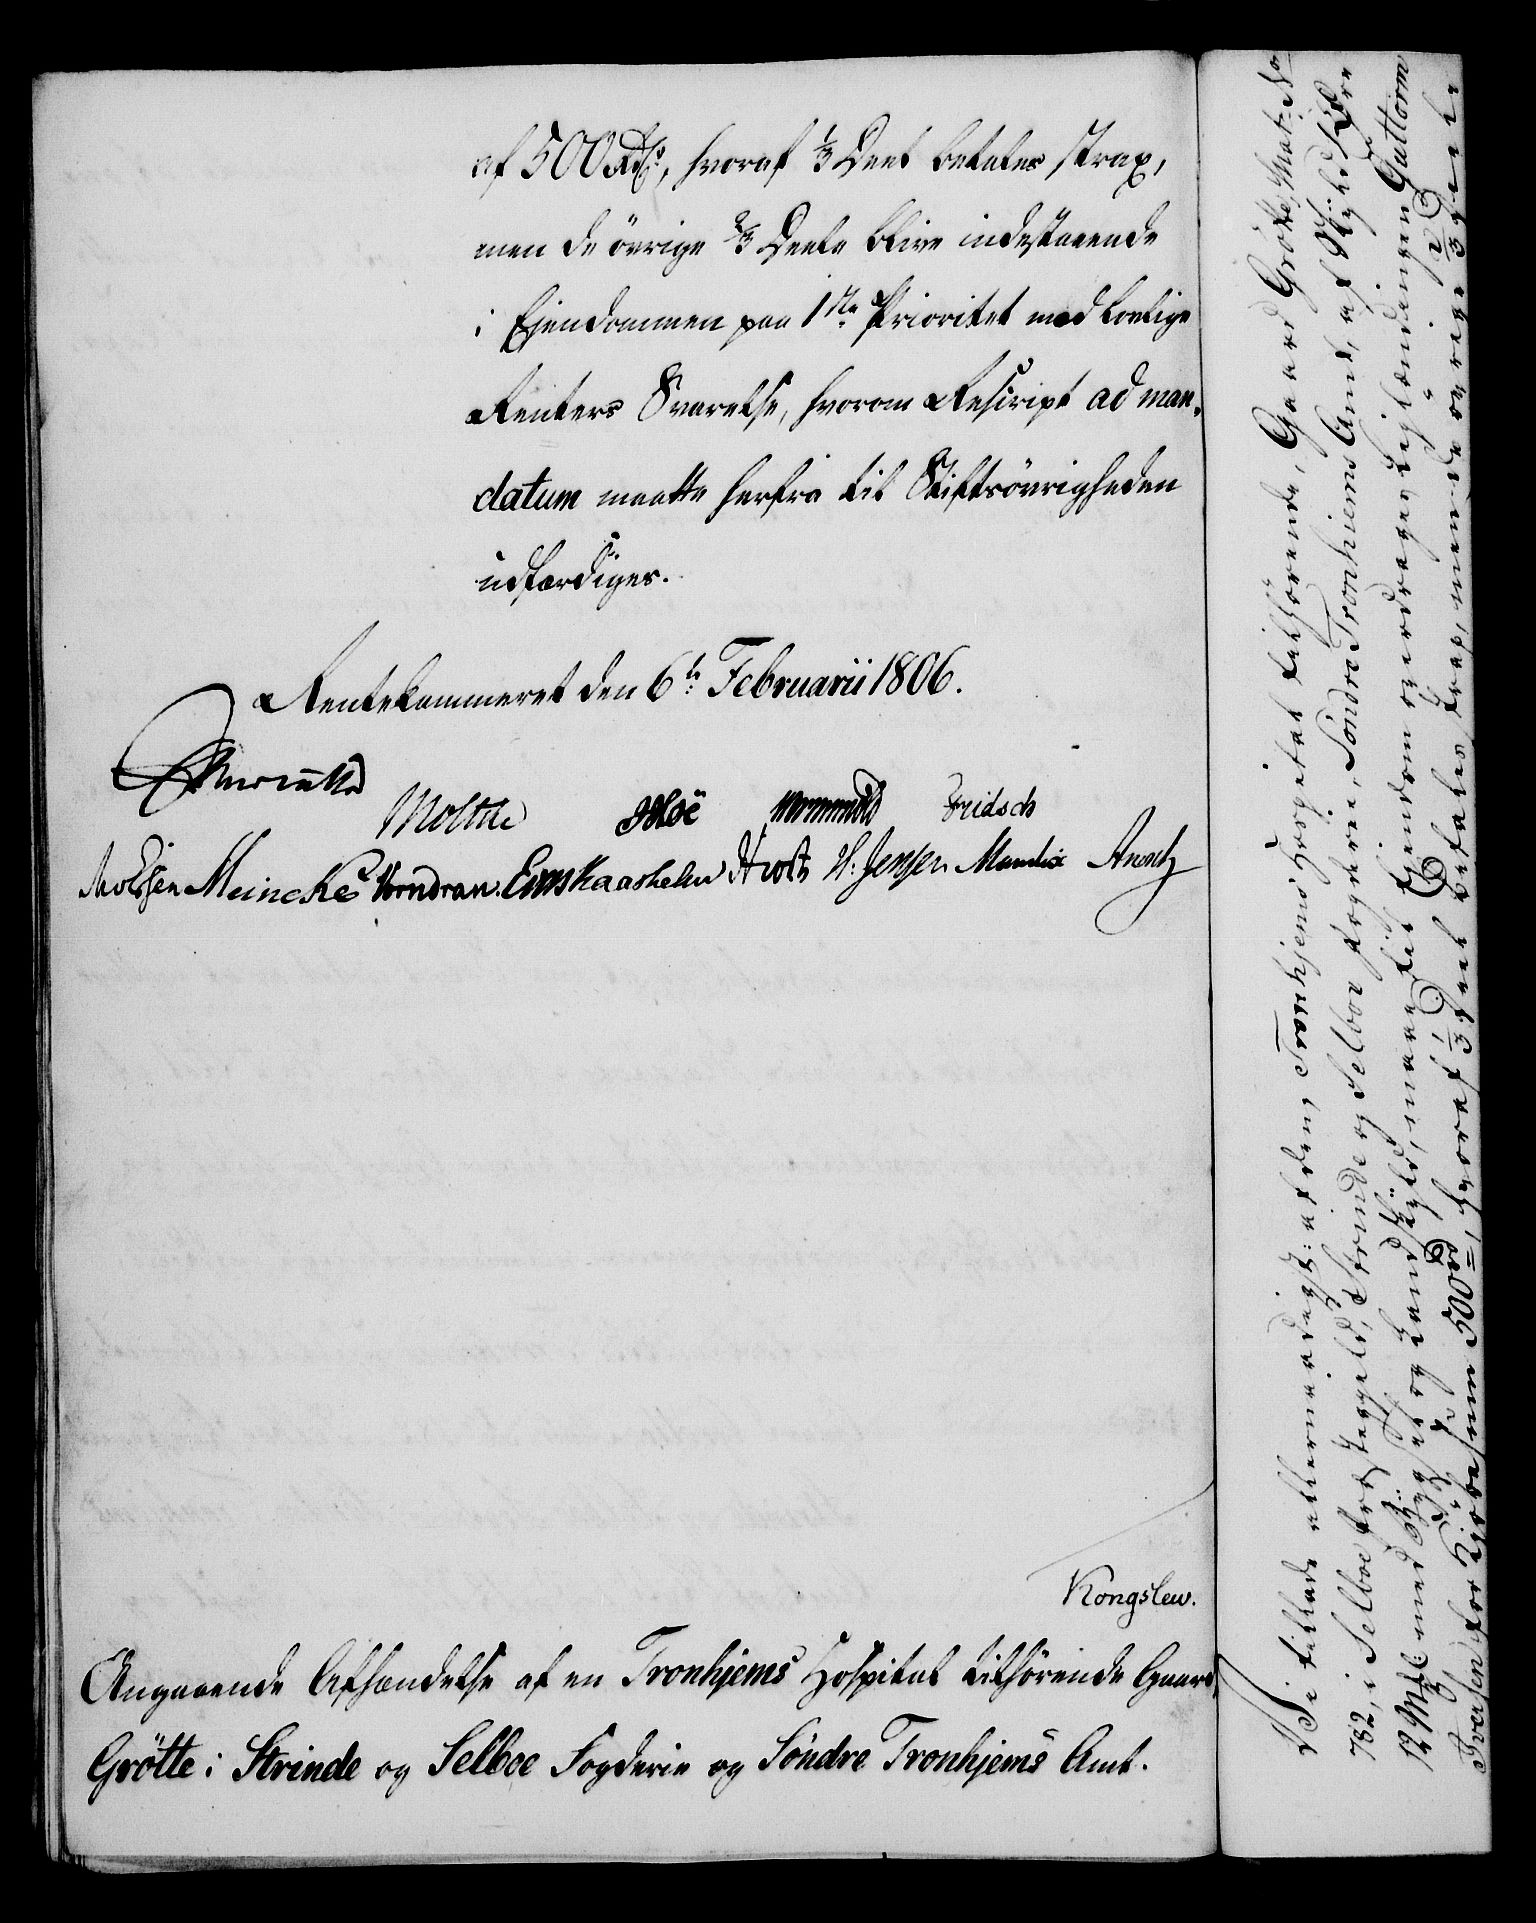 af 500 Rd., hvoraf 1/3 Deel betales strax,
men de övrige 2/3 Deele blive indestaaende
i Ejendommen paa 1ste Prioritet med lovlige
Renters Svarelse, hvorom Rescript ad man-
datum maatte herfra til Stiftsövrigheden
udfærdiges.
Rentekammeret den 6te Februarii 1806.
Moltke
Meincke Vorndran. H. Jensen
Kongslew.
Angaaende Afhændelse af en Tronhjems Hospital tilhörende Gaard
Grötte i Strinde og Selboe Fogderie og Söndre Tronhjems Amt.
Vi tillade allernaadigst: at den Tronhjems Hospital tilhörende Gaard Grötte, Mat: No
782, i Selboe Præstegield, Strinde og Selboe Fogderie, Söndre Tronhiems Amt, af Skyld
12 med Bygsel og Landskyld, maae til Ejendom overdrages Leilændingen Guttorm
Iversen for Kjöbesum 500 rd, hvoraf 1/3 Deel betales strax, men de övrige 2/3 Deele